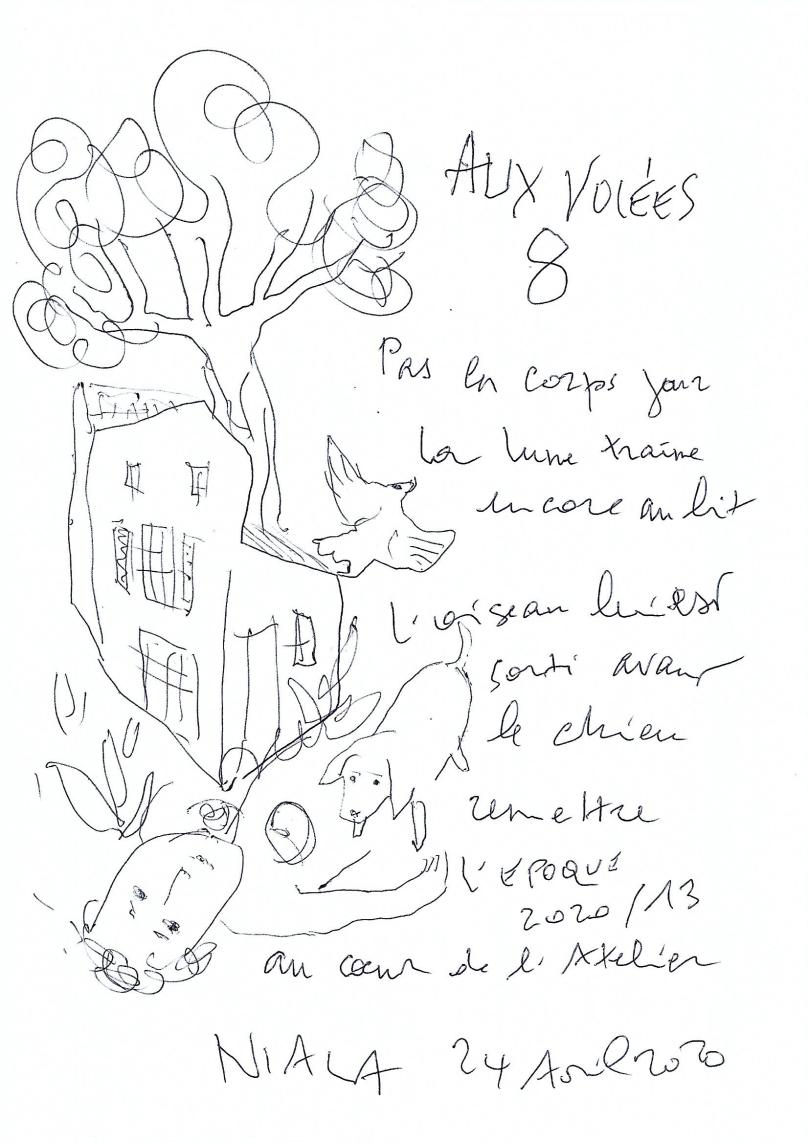 AUX VOLÉES
8
Pas en corps jour
la lune traîne
encore au lit
l'oiseau lui est
sorti avant
le chien
remettre
L'EPOQUE
2020/13
au cœur de l'Atelier
NIALA 24 Avril 2020